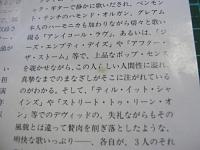 ック・ギターで静かに歌いだされ、ベンモン
ト・テンチのハモンド・オルガン、グレアム
本人のハーモニカも加わりながら切々と歌い
綴る「アンイコール・ラヴ」、あるいは、「ジ
ーズ・エンプティ・デイズ」や「アフター・
ザ・ストーム」等で、上品なポップ・センス
を覗かせながら、この人らしい人間性に溢れ
真摯なまでのまなざしがそこに注がれている
のがわかる。そして、「ティル・イット・シャ
インズ」や「ストリート・トゥ・リーン・オ
ン」等でのデヴィッドの、失礼ながらもその
風貌とは違って贅肉を削ぎ落としたような、
明快な歌いっぷり――。各自が、3人のそれ